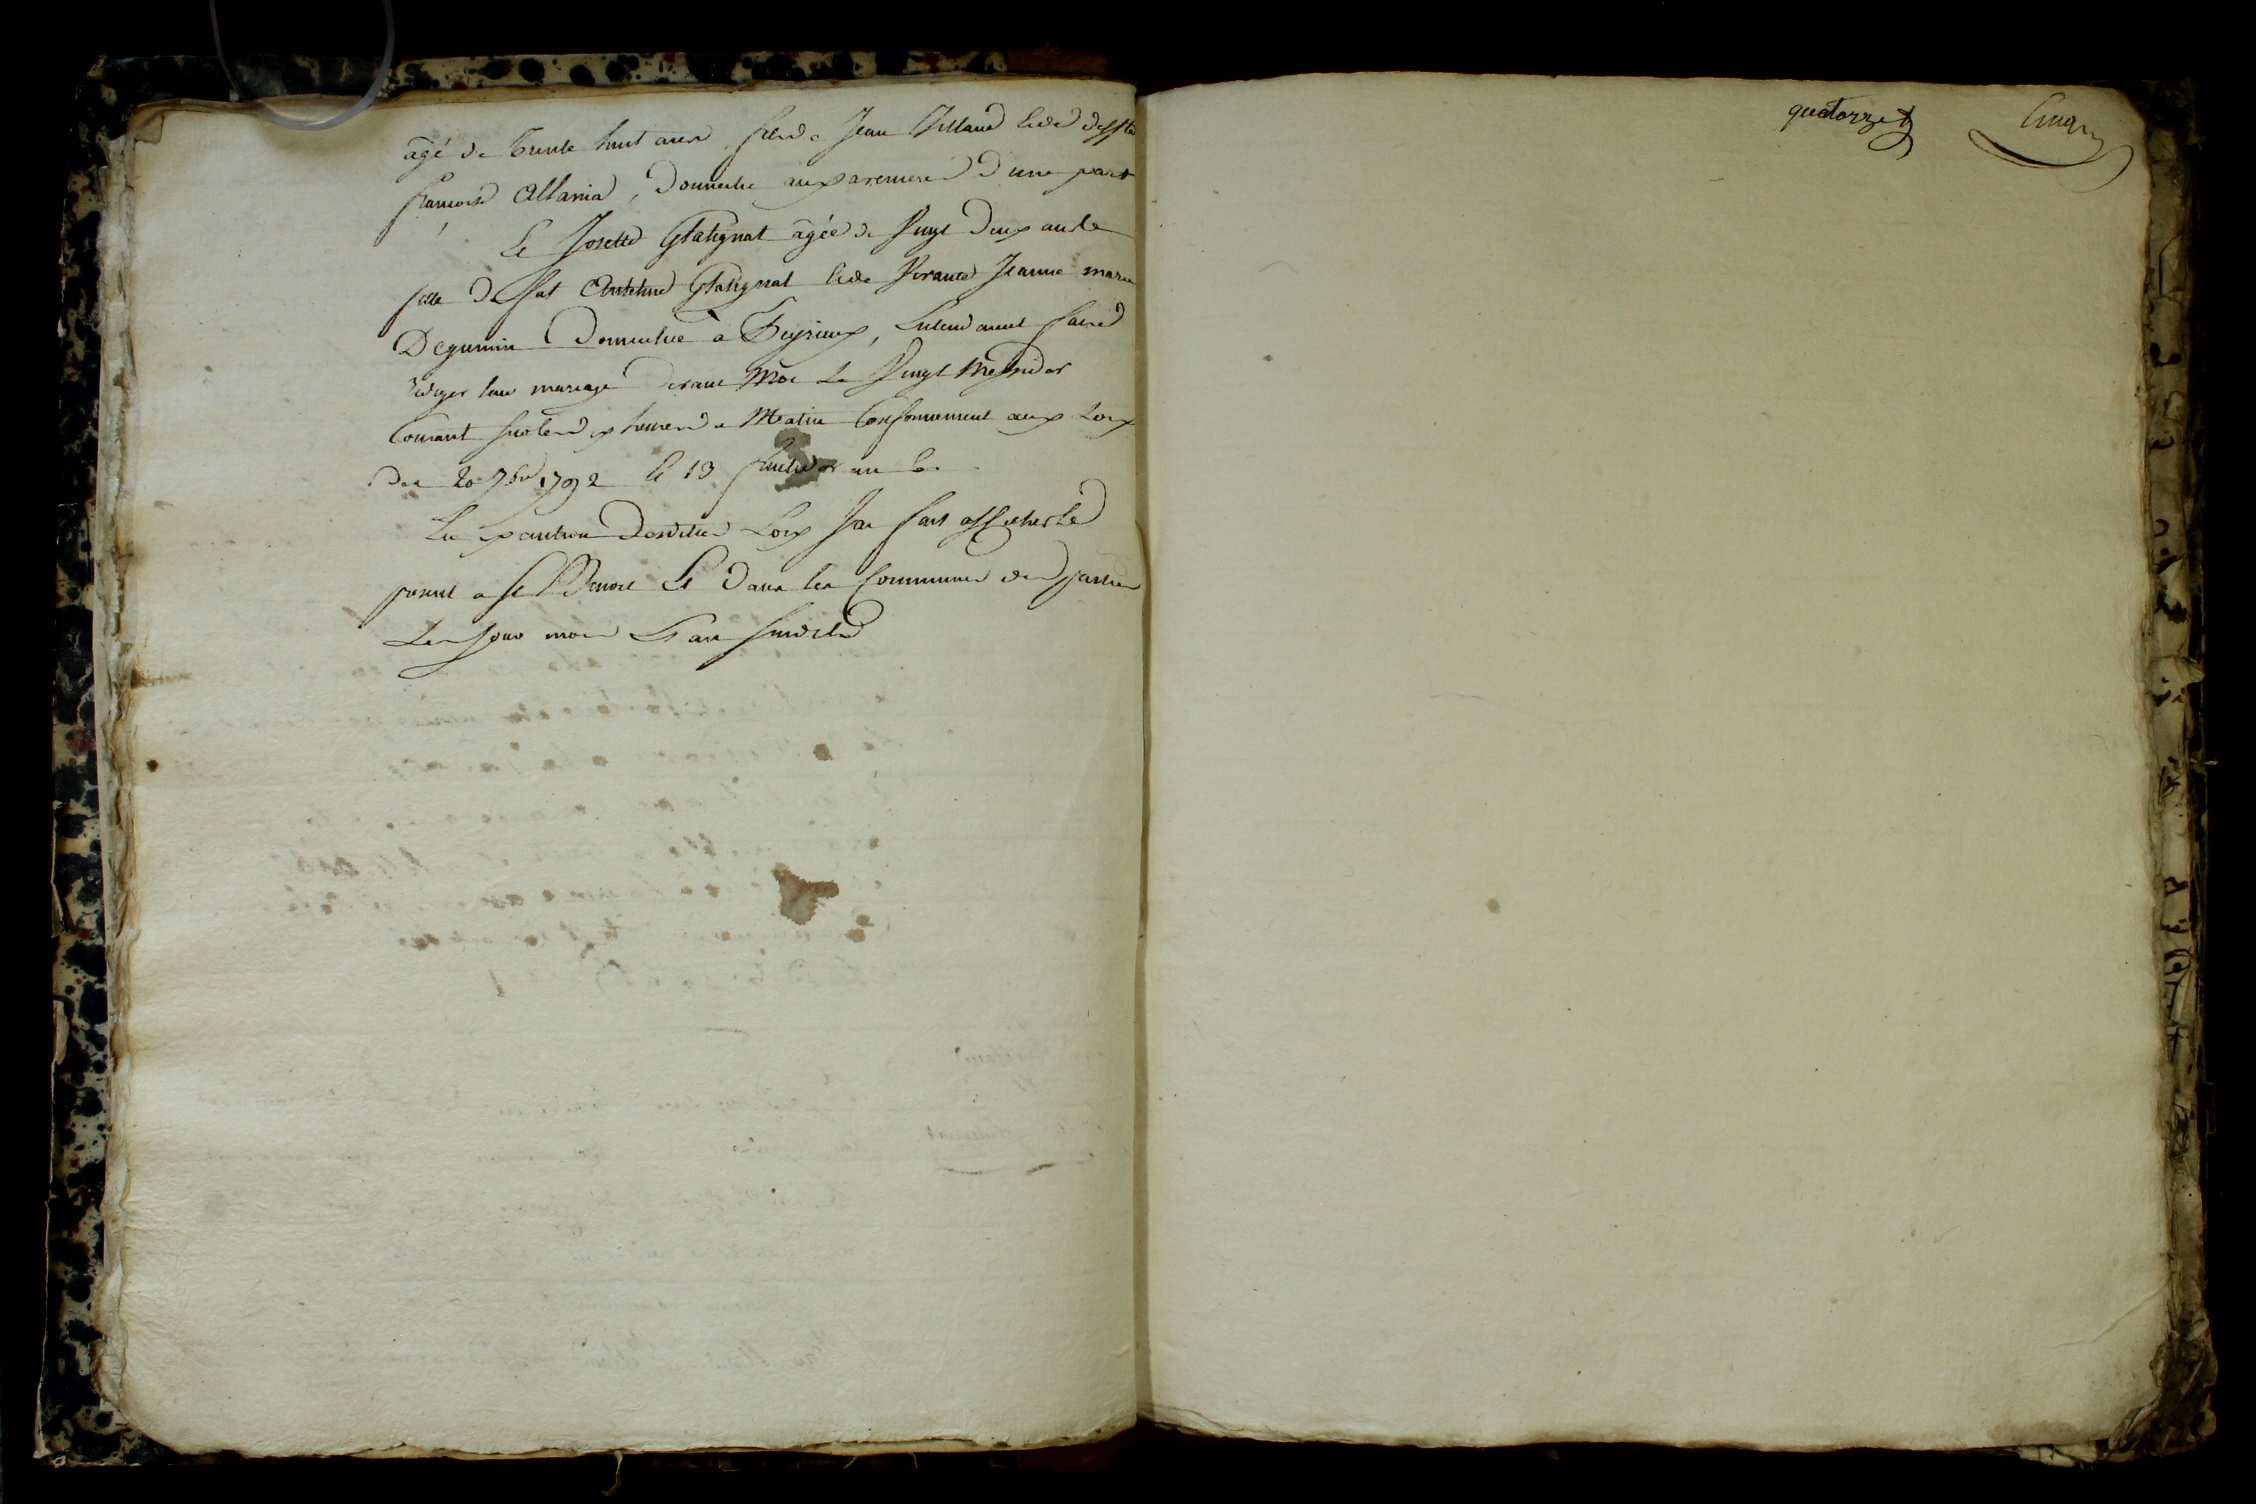 âgé de Trente huit ans fils de Jean Villand &
françoise Allarnia, Domicilié aux avenieres d'une part
Et Josette Glatignat agée de Vingt Deux ans
fille de fut Anthelme Glatignat & de vivante Jeanne marie
Degumin Domiciliée a Peyrieux, Entendament faire
rédiger leur mariage devant Moi Le Vingt Messidor
Courant sur les dix heures du Matin Conformement aux Loix
des 20 7bre 1792 & 13 fructidor an 6.
En execution desdites Loix J'ai fait afficher le
present a St Benoit Et dans les Communes des parties
Les Jour mois Et an susdits
quatorze
Cinq